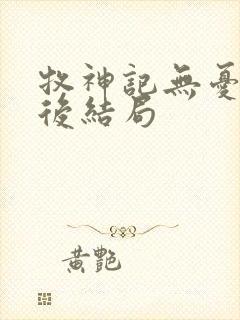 牧神記無憂
後結局
黃艷